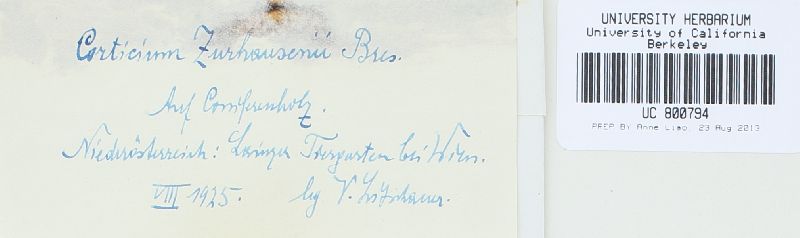 Corticium Zurhausenii Bres.
Auf Coniferenholz.
Niederösterreich: Lainzer Tiergarten bei Wien.
VIII 1925. leg V. Litschauer.
UNIVERSITY HERBARIUM
University of California
Berkeley
UC 800794
PREP BY Anne Limo, 23 Aug 2013